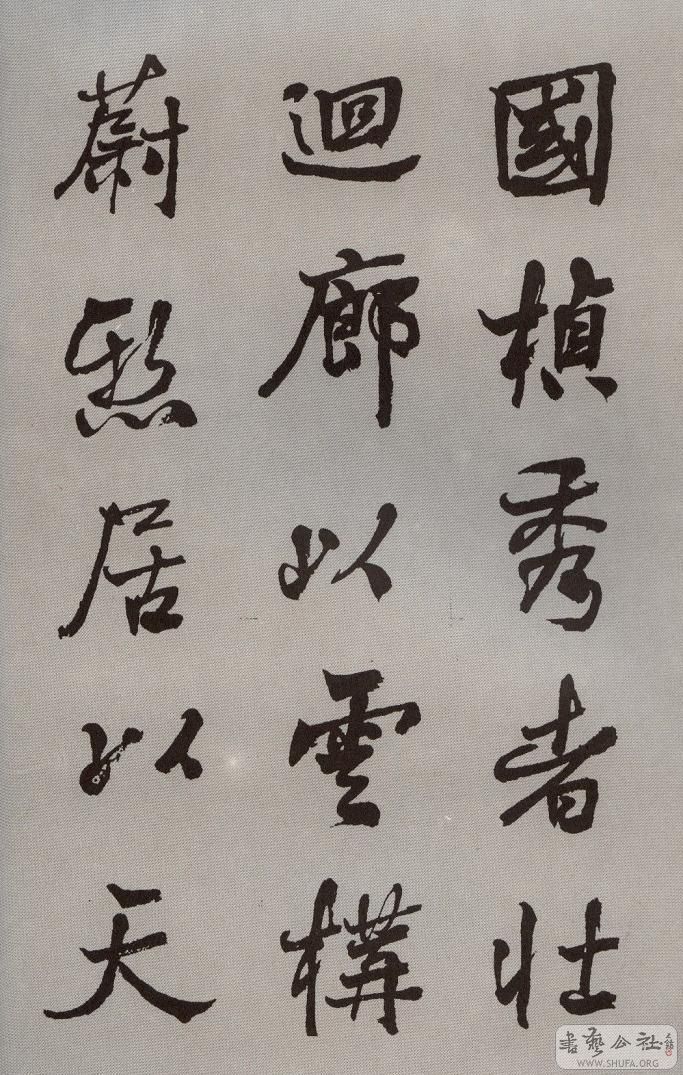 國楨秀者壯
迴廊以雲構
蔚懸居以天
書藝公社
WWW.SHUFA.ORG